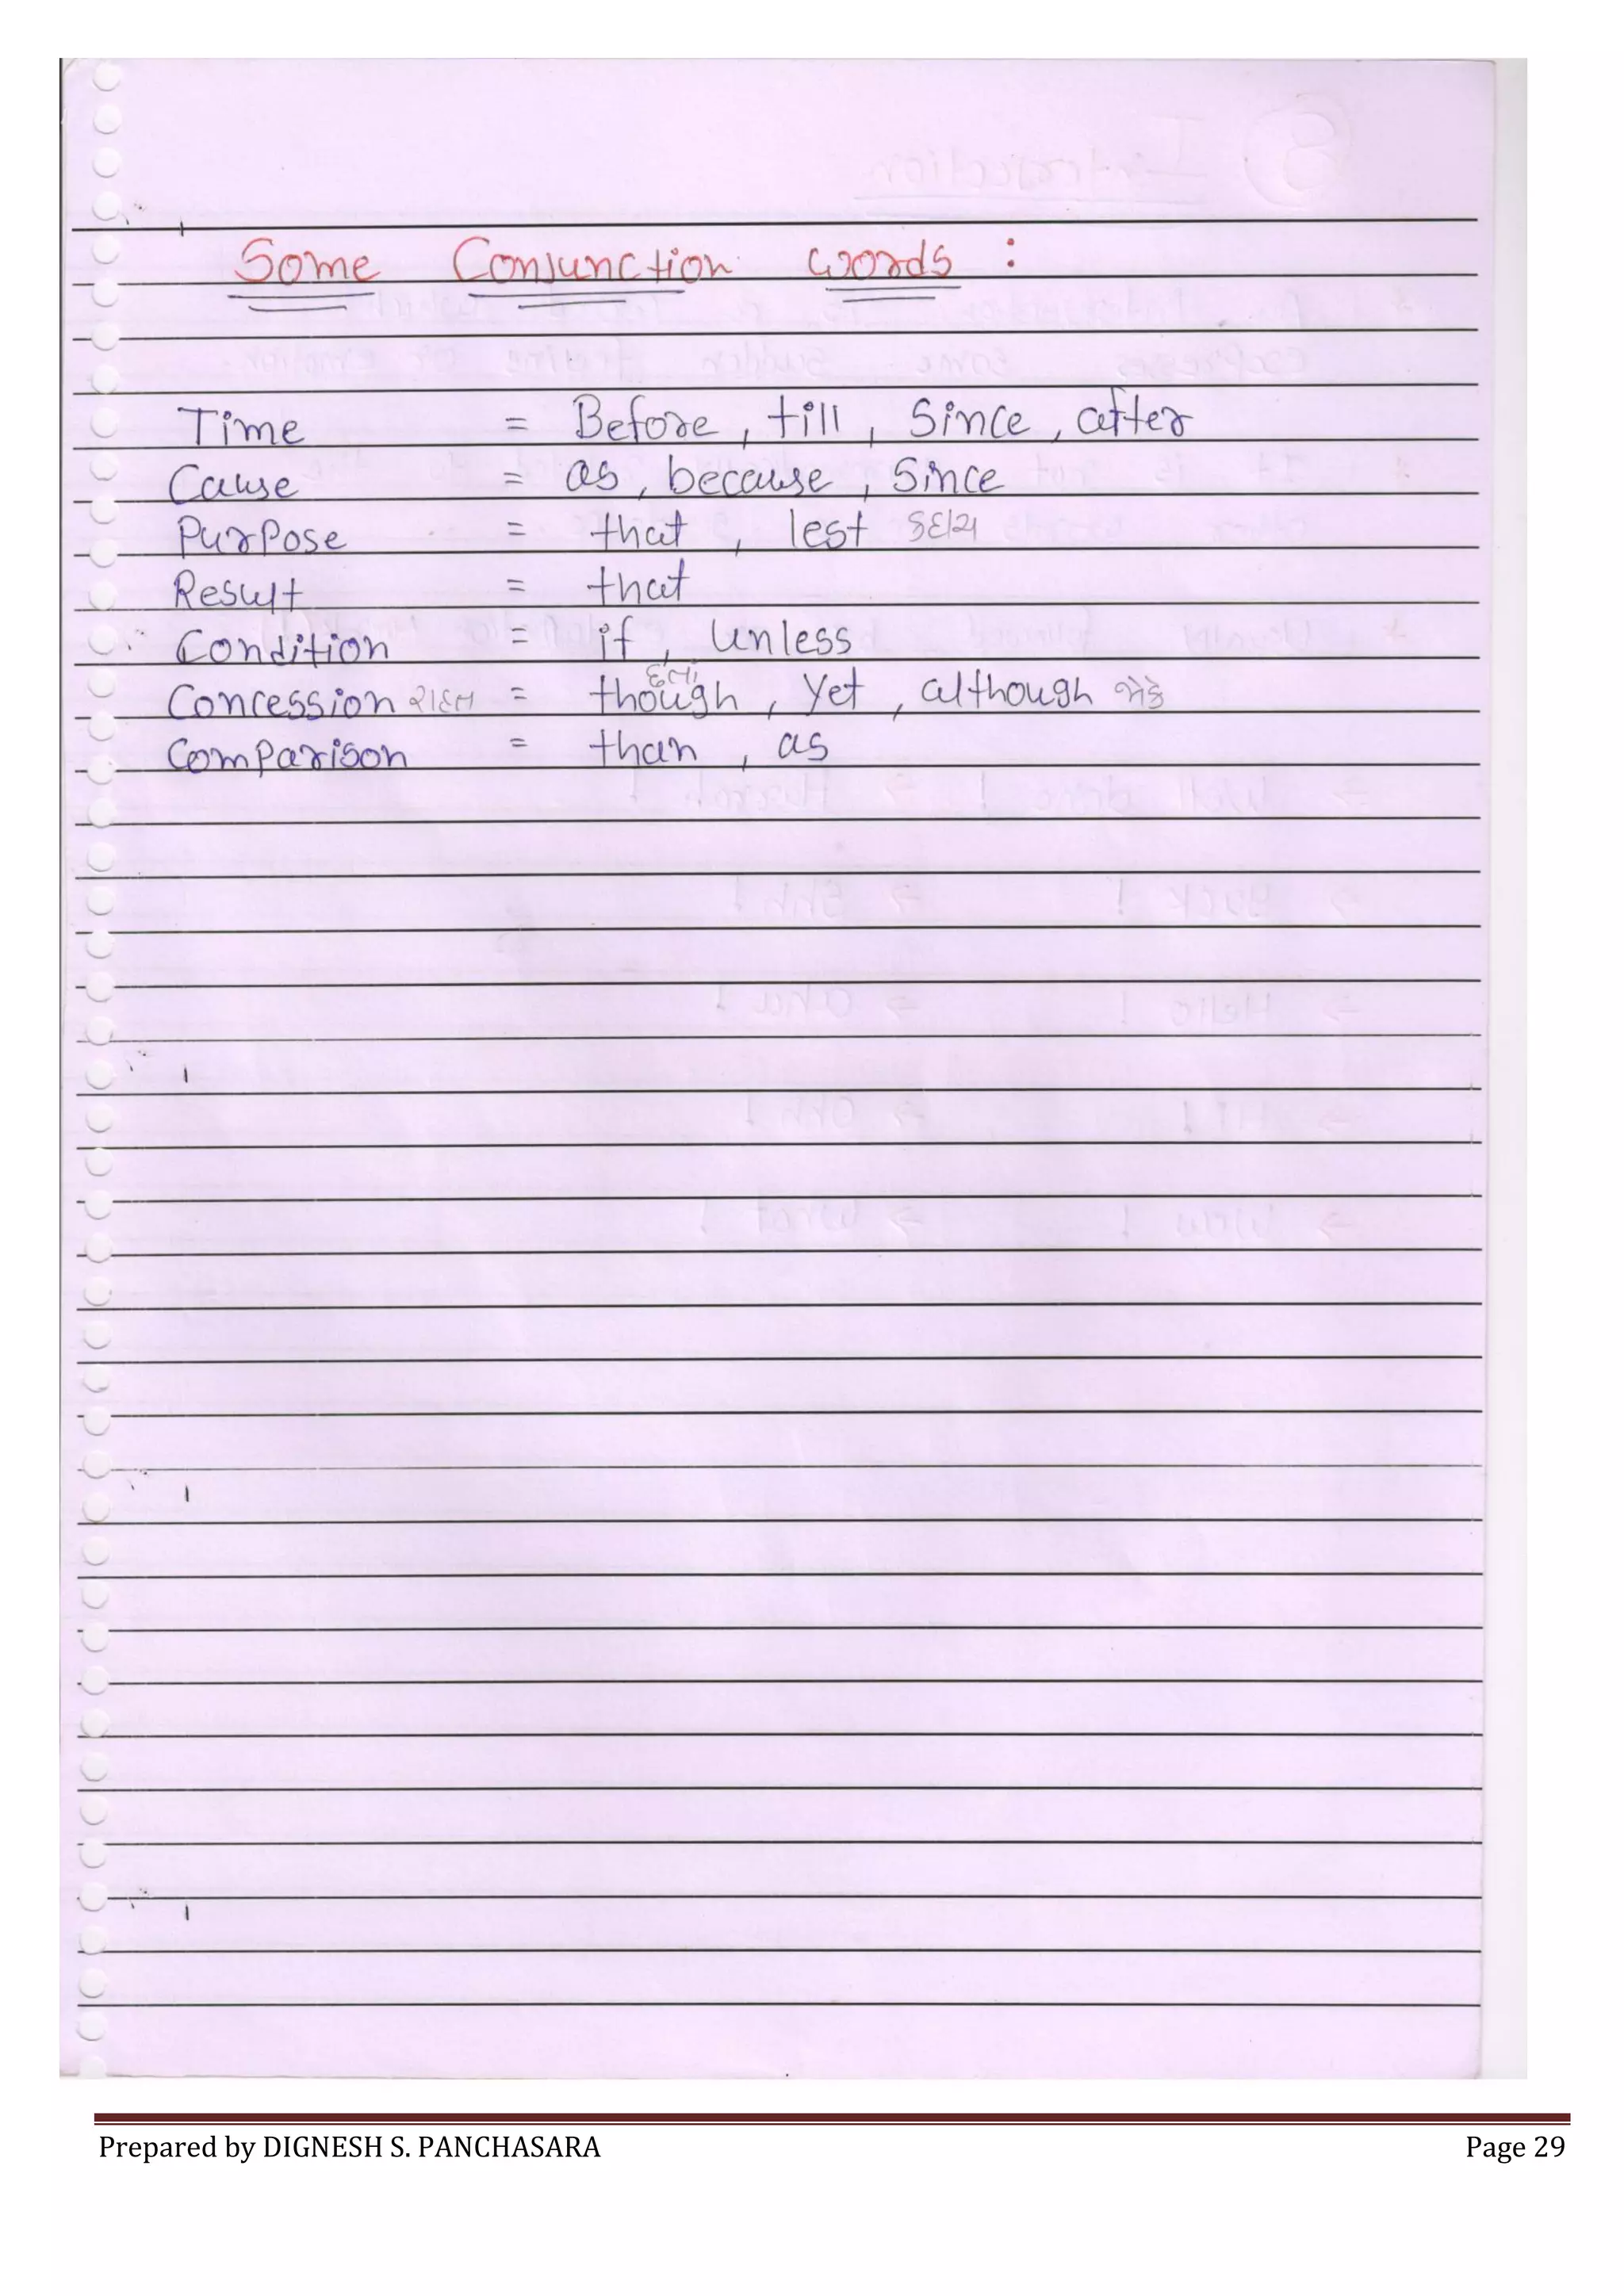 Some Conjunction words :
Time = Before, till, Since, after
Cause = as, because, Since
Purpose = that, lest કદાચ
Result = that
Condition = if, unless
Concession રાહત = though, Yet, although જોકે
Comparison = than, as
Prepared by DIGNESH S. PANCHASARA Page 29